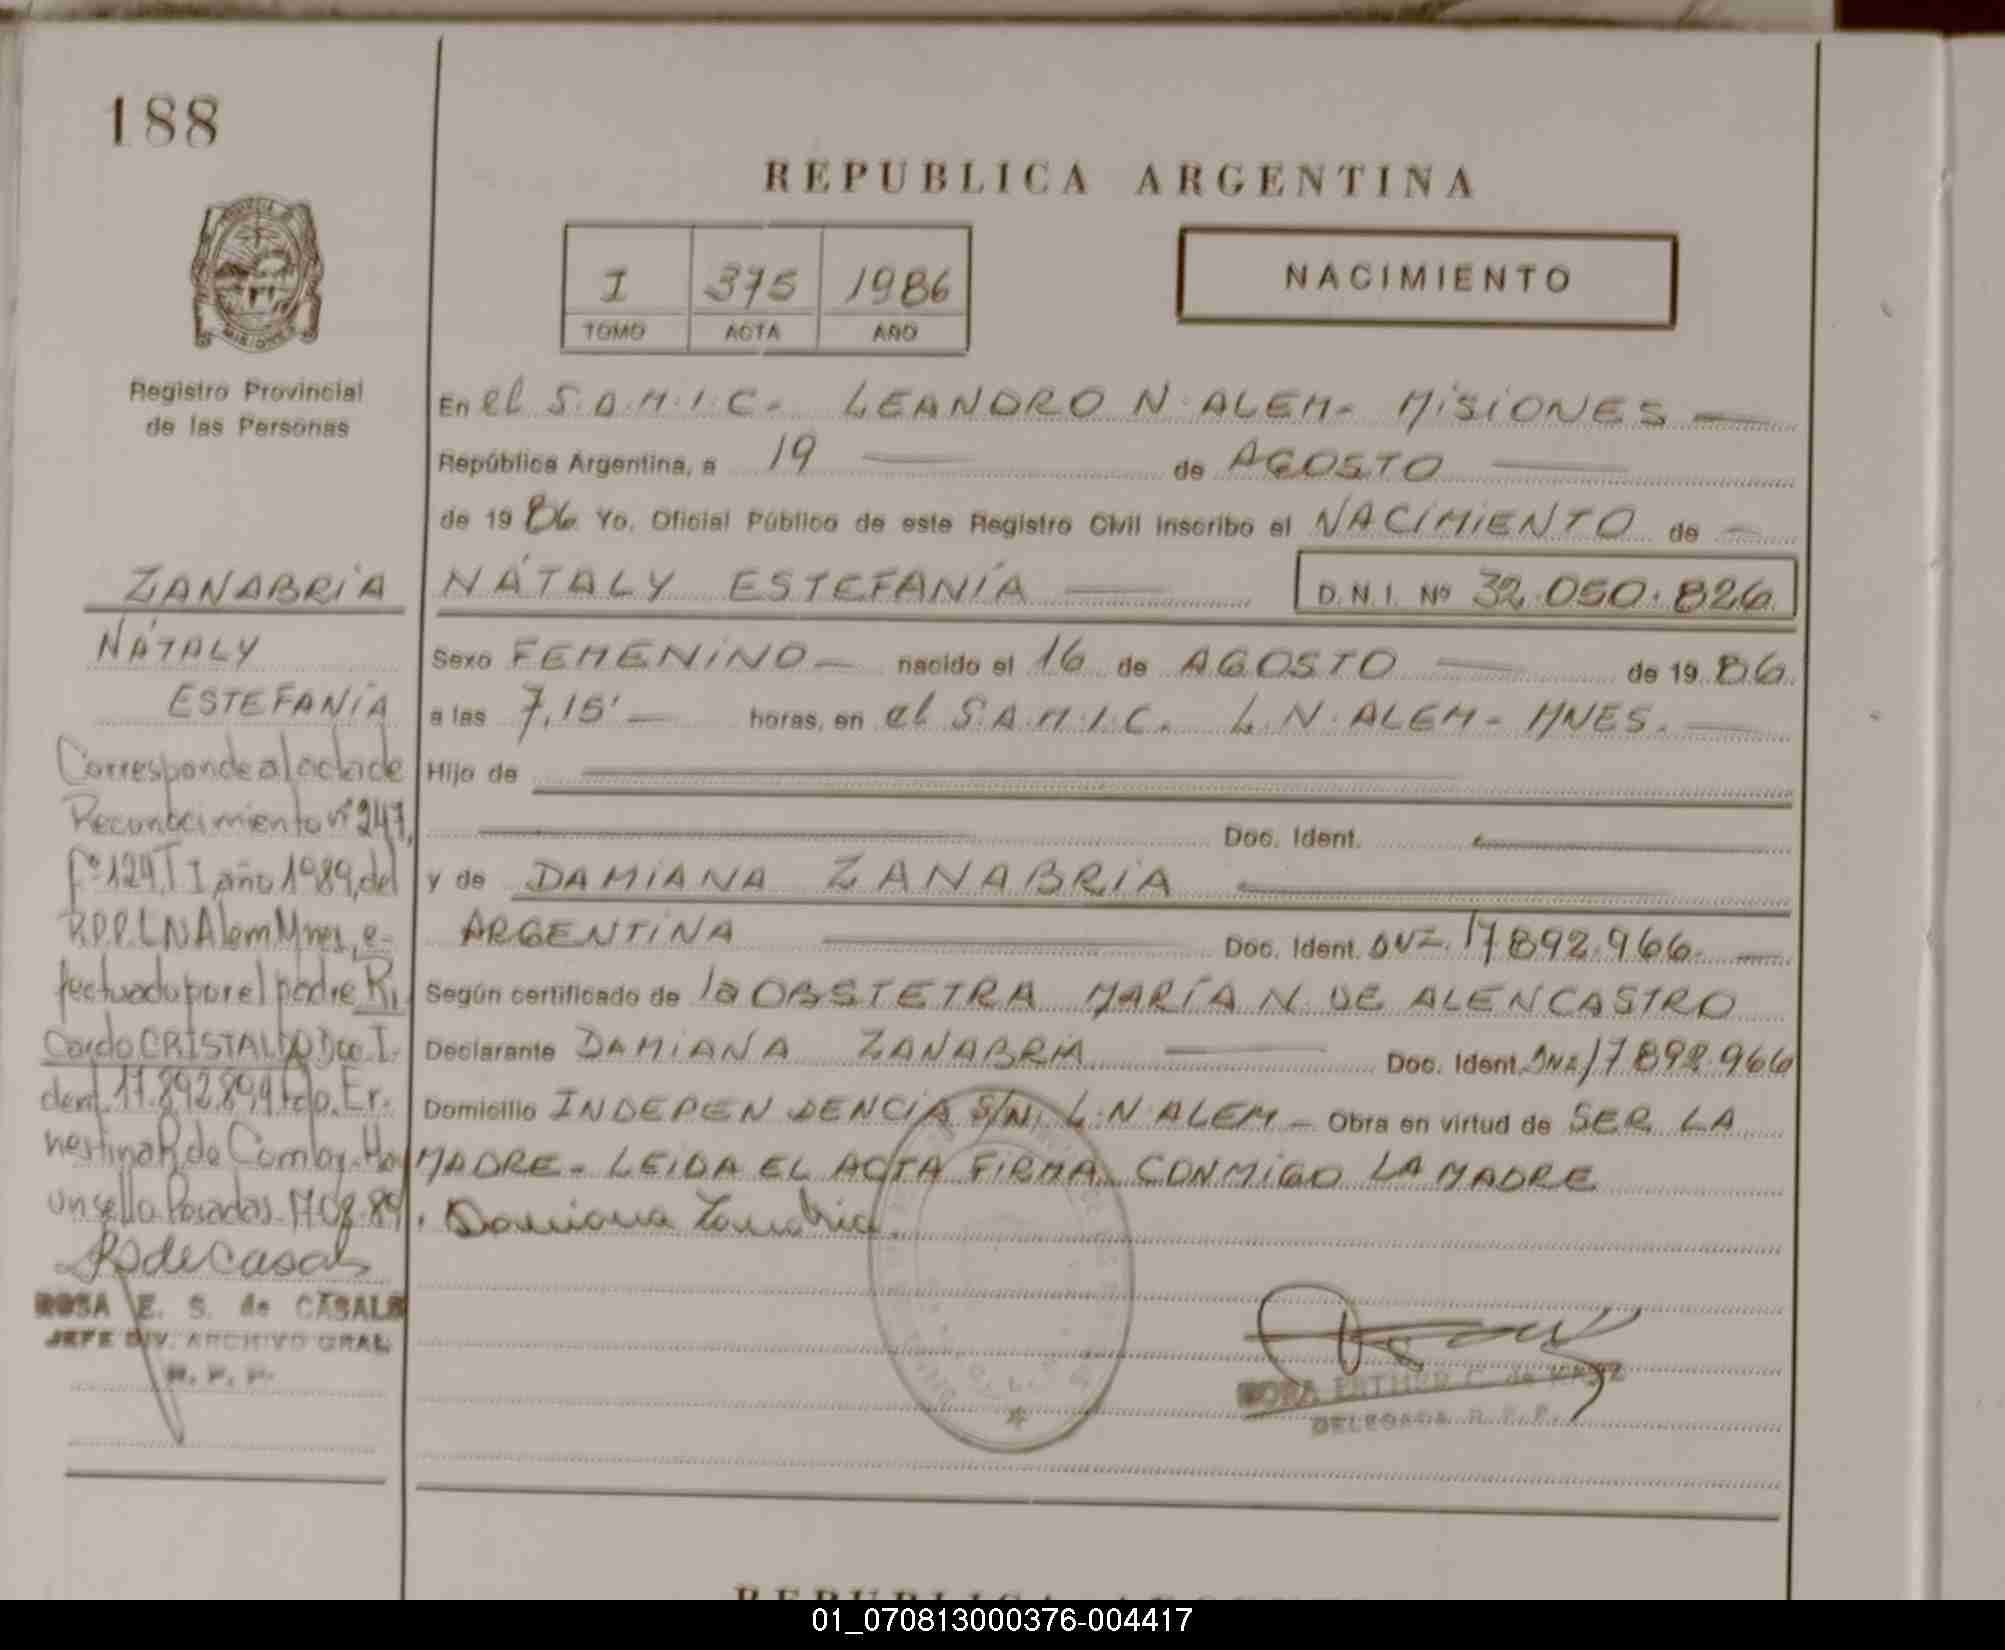 188
REPUBLICA ARGENTINA
I 375 1986
TOMO ACTA AÑO
NACIMIENTO
MISIONES
Registro Provincial
de las Personas
En el S.A.M.I.C. LEANDRO N. ALEM - MISIONES
República Argentina, a 19 de AGOSTO
de 1986 Yo, Oficial Público de este Registro Civil inscribo el NACIMIENTO de
NÁTALY ESTEFANÍA D.N.I. Nº 32.050.826
Sexo FEMENINO - nacido el 16 de AGOSTO de 1986
a las 7,15' horas, en el S.A.M.I.C. L.N. ALEM - MNES.
Hijo de
Doc. Ident.
y de DAMIANA ZANABRIA
ARGENTINA Doc. Ident. 17.892.966
Según certificado de la OBSTETRA MARÍA N. DE ALENCASTRO
Declarante DAMIANA ZANABRIA Doc. Ident. 17.892.966
Domicilio INDEPENDENCIA S/N. L.N. ALEM - Obra en virtud de SER LA
MADRE - LEIDA EL ACTA FIRMA CONMIGO LA MADRE
Damiana Zanabria
DELEGADA R.P.P.
ZANABRIA
NÁTALY
ESTEFANÍA
Corresponde al acta de
Reconocimiento nº 247,
Fº 124, T I año 1989, del
R.P.P. L N Alem Mnes, e-
fectuado por el padre Ri
cardo CRISTALDO Doc. I-
dent. 17.892.899 Fdo. Er-
nestina R. de Comby. Hay
un sello. Posadas 17-08-89
ROSA E. S. de CASALS
JEFE DIV. ARCHIVO GRAL.
R. P. P.
01_070813000376-004417